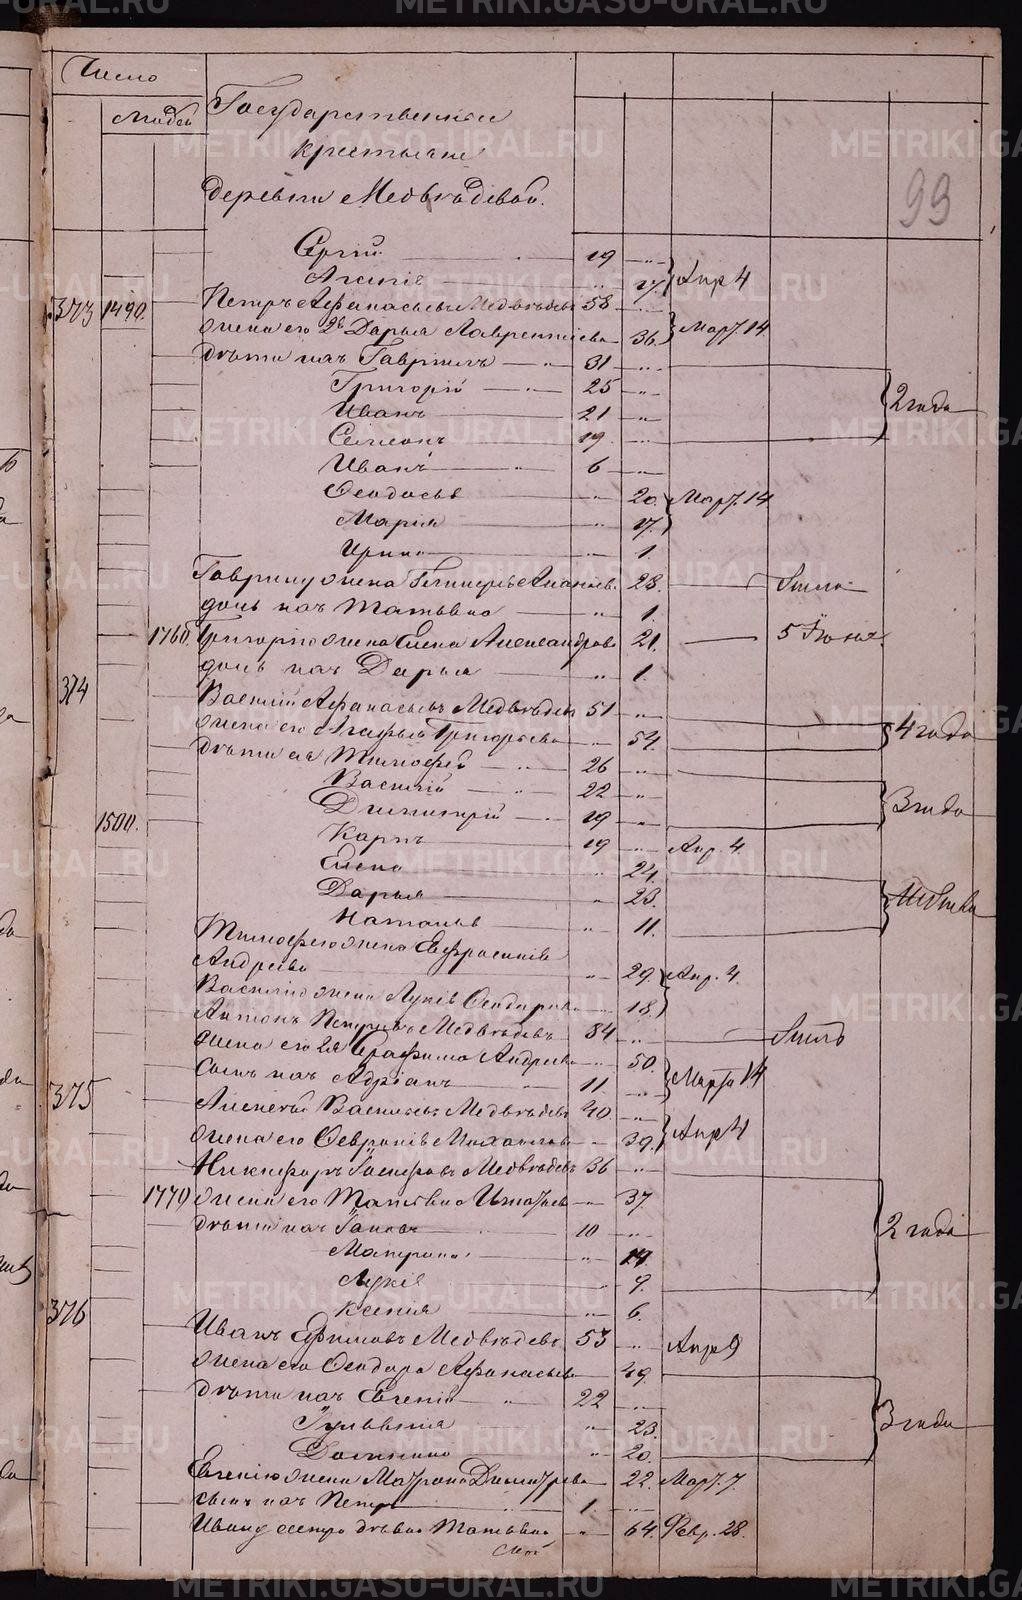 Число
Людей
Государственные
крестьяне
деревни Медвѣдевой.
99
Сергій 19 —
Агапія " 17. Апр 4
373 1490. Петръ Аѳанасьевъ Медвѣдевъ 58 —
жена его 2я Дарья Лаврентіева 36. Март. 14
дѣти ихъ Гавріилъ — " — 31 —
Григорій — " — 25 —
Иванъ 21 " 2 года
Симеонъ 19 —
Иванъ — " — 6 —
Ѳеодосья " 20. Март. 14
Марія " 17.
Ирина " 1.
Гавріилу жена 28.
дочь ихъ Татьяна " 1.
1760. Григорію жена Елена Александрова 21. — 5 Іюня
дочь ихъ Дарья " 1.
374 Василій Аѳанасьевъ Медвѣдевъ 51 "
жена его Агафья Григорьева " 54. 4 года
дѣти ея Тимофей " 26 "
Василій — " — 22 — 3 года
1500. Димитрій — 19 "
Карпъ 19 " Апр. 4.
Елена " 24.
Дарья " 23.
Наталья " 11.
Тимофею жена Евфросинія
Андреева " 29. Апр. 4.
Василію жена Лукія Ѳеодорова 18.
Антонъ Петровъ Медвѣдевъ 84 "
жена его 2я Серафима Андреева " 50.
сынъ ихъ Адріанъ " 11. " Марта 14
375 Алексей Васильевъ Медвѣдевъ 40. "
жена его Февронія Михайлова " 39. Апр 4
Никифоръ Іосифовъ Медвѣдевъ 36 "
1770 жена его Татьяна Игнатьева " 37.
дѣти ихъ Іаковъ 10 " 2 года
Матрона " 14.
Лукія " 9.
376 Ксенія " 6.
Иванъ Ефимовъ Медвѣдевъ 53 " Апр 9
жена его Ѳеодора Аѳанасьева 49.
дѣти ихъ Евгеній " 22 "
Гулянія " 23. 3 года
Домника " 20.
Евгенію жена Матрона Димитріева 22. Март. 7
сынъ ихъ Петръ " 1. "
Ивану сестра дѣвка Татьяна " 64. Февр. 28.